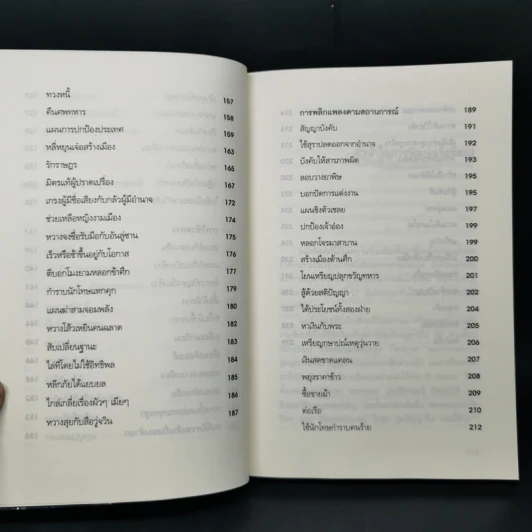 ทวงหนี้ 157
คืนศพทหาร 158
แผนการปกป้องประเทศ 159
หลี่หยุนเจ๋อสร้างเมือง 163
รักราษฎร 165
มิตรแท้ผู้ปราดเปรื่อง 167
เกรงผู้มีชื่อเสียงกับกลัวผู้มีอำนาจ 172
ช่วยเหลือหญิงงามเมือง 174
หวางจงซื่อรับมือกับอันลู่ซาน 175
เร็วหรือช้าขึ้นอยู่กับโอกาส 176
ตีบอกโมงยามหลอกข้าศึก 177
กำราบนักโทษแหกคุก 179
แผนฆ่าสามจอมพลัง 180
หวางโส้วเหยินคนฉลาด 182
สับเปลี่ยนฐานะ 183
ไล่ที่โดยไม่ใช้อิทธิพล 184
หลีกภัยได้แยบยล 185
ไกล่เกลี่ยเรื่องผัวๆ เมียๆ 186
หวางสุยกับสือวู่จวิน 187
การพลิกแพลงตามสถานการณ์ 189
สัญญาบังคับ 191
ใช้สุราปลดออกจากอำนาจ 192
บังคับให้สารภาพผิด 193
ลอบวางยาพิษ 195
บอกปัดการแต่งงาน 195
แผนชิงตัวเชลย 197
ปกป้องเจ้าฮ่อง 199
หลอกโจรมาสาบาน 199
สร้างเมืองต้านศึก 200
โยนเหรียญปลุกขวัญทหาร 201
สู้ด้วยสติปัญญา 202
ได้ประโยชน์ทั้งสองฝ่าย 204
หาเงินกับพระ 205
เหรียญกษาปณ์เหตุวุ่นวาย 206
เงินสดขาดแคลน 207
พยุงราคาข้าว 208
ซื้อขายม้า 209
ต่อเรือ 210
ใช้นักโทษกำราบคนร้าย 212